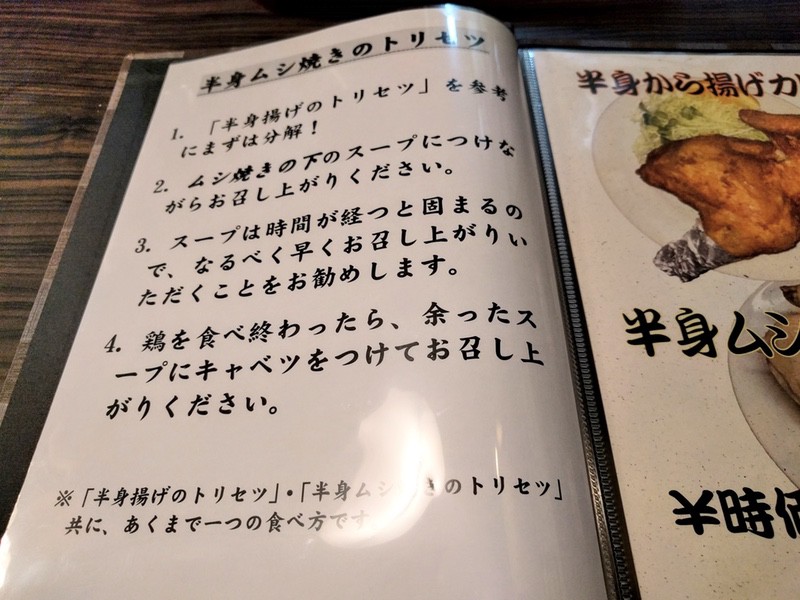 半身ムシ焼きのトリセツ
1. 「半身揚げのトリセツ」を参考
にまずは分解！
2. ムシ焼きの下のスープにつけな
がらお召し上がりください。
3. スープは時間が経つと固まるの
で、なるべく早くお召し上がりい
ただくことをお勧めします。
4. 鶏を食べ終わったら、余ったス
ープにキャベツをつけてお召し上
がりください。
※「半身揚げのトリセツ」・「半身ムシ きのトリセツ」
共に、あくまで一つの食べ方です
半身から揚げカ
半身ムシ
¥時価